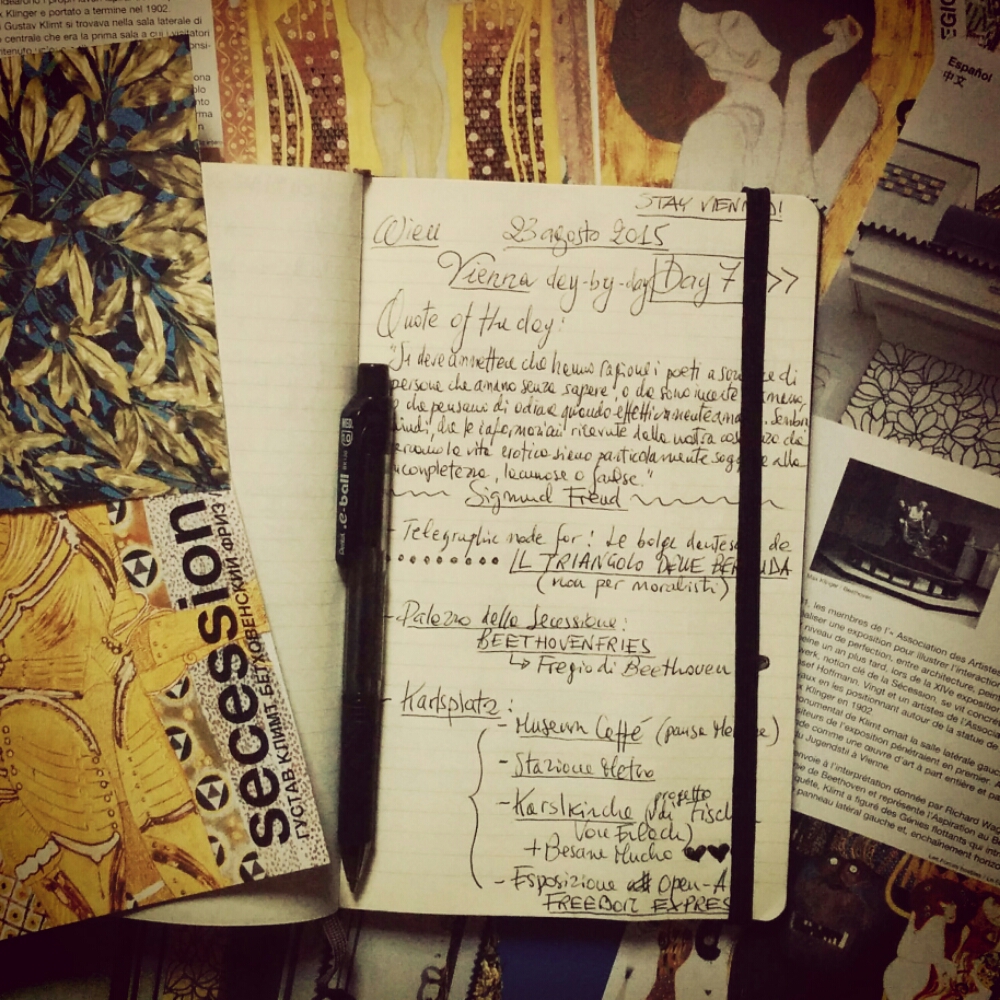 Klinger e portato a termine nel 1902.
Gustav Klimt si trovava nella sala laterale di
centrale che era la prima sala a cui i visitatori
Español
中文
STAY VIENN
Wien 23 agosto 2015
Vienna dey-by-day Day 7 >>
Quote of the day:
"Si deve ammettere che hanno ragione i poeti a di
persone che amano senza sapere, o che sono incerte
che pensano di odiare quando effettivamente
che le informazioni ricevute dalla nostra
la vita erotica siano particolarmente alla
incompletezza, lacunose o false."
Sigmund Freud
Telegraphic node for: Le bolge dantesche
IL TRIANGOLO DELLE BERMUDA
(non per moralisti)
- Palazzo della Secessione:
BEETHOVENFRIES
↳ Fregio di Beethoven
- Karlsplatz:
- Museum Caffé (pausa
- Stazione Metro
- Karslkirche (progetto
Von Erlach)
+ Besame Mucho ♥♥
- Esposizione Open-A
FREEDOM EXPRES
Pentel .e-ball 1.0
secession
ГУСТАВ КЛИМТ БЕТХОВЕНСКИЙ ФРИЗ
Max Klinger - Beethoven
les membres de l'« Association des Artiste
aliser une exposition pour illustrer l'interaction
niveau de perfection, entre architecture, pein
eine un an plus tard, lors de la XIVe exposition
werk, notion clé de la Sécession, se vit concré
osef Hoffmann. Vingt et un artistes de l'Associa
aux en les positionnant autour de la statue de
x Klinger en 1902.
numental de Klimt ornait la salle latérale gauc
siteurs de l'exposition pénétraient en premier.
de comme une œuvre d'art à part entière et pa
u Jugendstil à Vienne.
envoie à l'interprétation donnée par Richard Wa
e de Beethoven et représente l'Aspiration au B
quête, Klimt a figuré des Génies flottants qui in
panneau latéral gauche et, enchaînement horizon